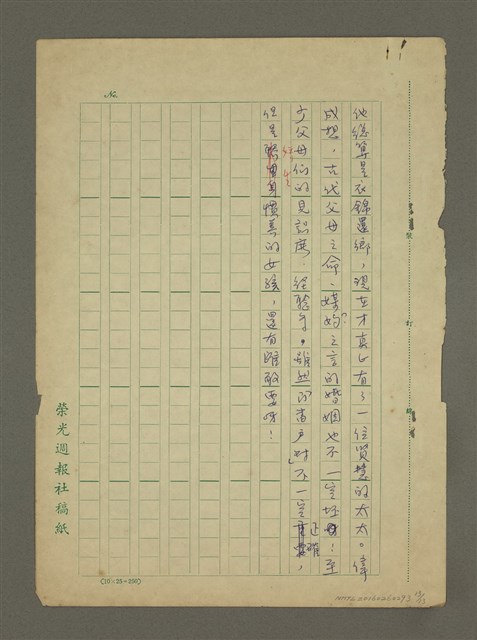 他總算是衣錦還鄉,現在才真正有了一位賢慧的太太。偉
成想,古代父母之命、媒妁之言的婚姻也不一定坏!至
少父母們的見識廣,經驗多。雖然「門當戶對」不一定正確,
但是嬌生慣養的女孩,還有誰敢要呀!
榮光週報社稿紙
No.
(10×25=250)